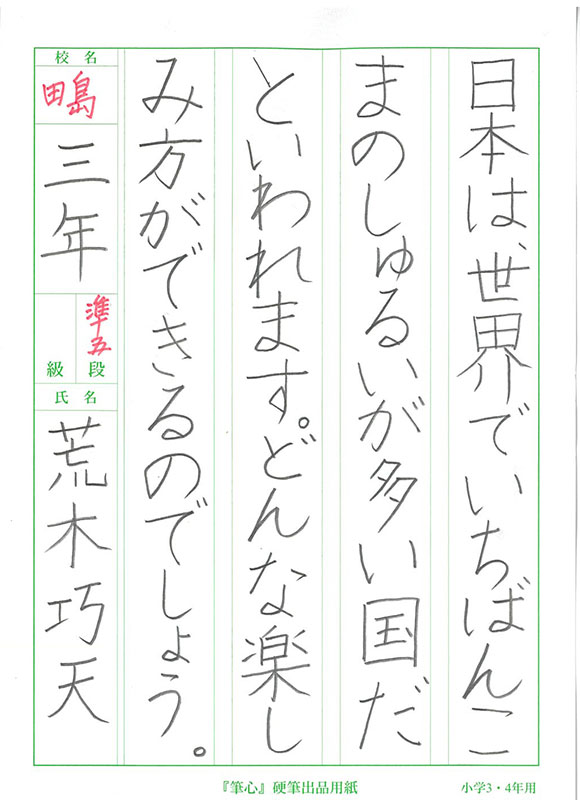 日本は、世界でいちばんこ
まのしゅるいが多い国だ
といわれます。どんな楽し
み方ができるのでしょう。
校名
鴫
三年
準五
段
級
氏名
荒木巧天
『筆心』硬筆出品用紙
小学3・4年用